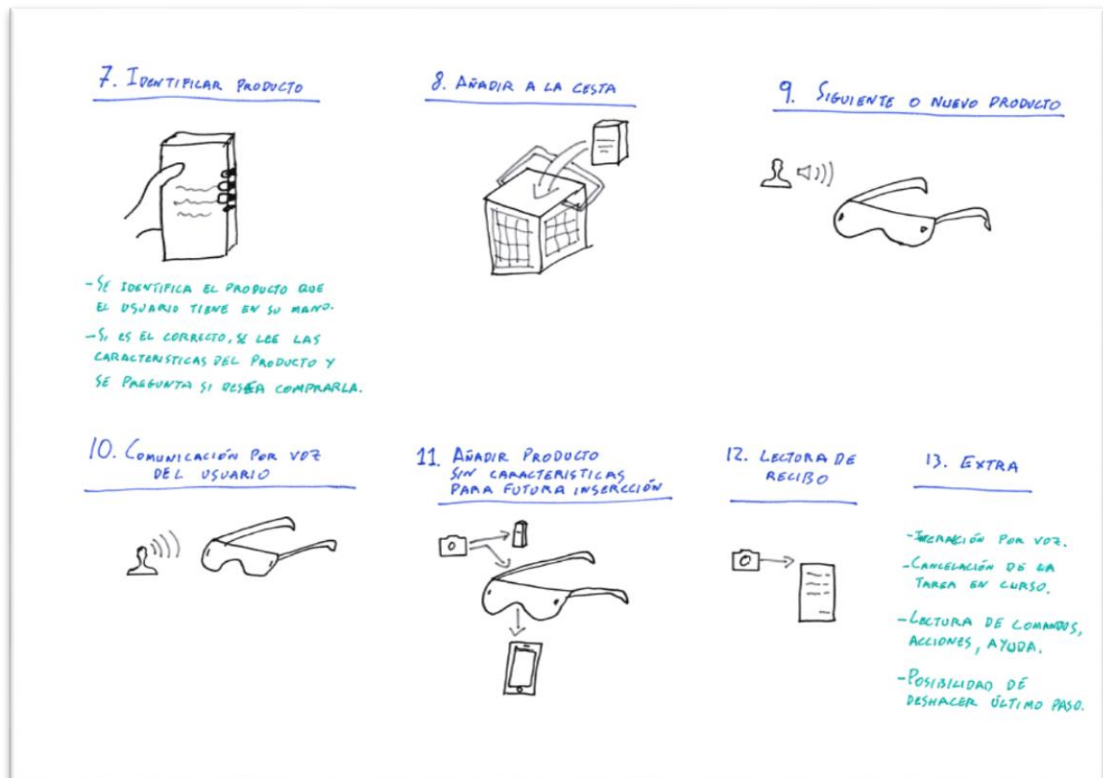 7. IDENTIFICAR PRODUCTO
- SE IDENTIFICA EL PRODUCTO QUE
EL USUARIO TIENE EN SU MANO.
- SI ES EL CORRECTO, SE LEE LAS
CARACTERISTICAS DEL PRODUCTO Y
SE PREGUNTA SI DESEA COMPRARLA.
8. AÑADIR A LA CESTA
9. SIGUIENTE O NUEVO PRODUCTO
10. COMUNICACIÓN POR VOZ
DEL USUARIO
11. AÑADIR PRODUCTO
SIN CARACTERISTICAS
PARA FUTURA INSERCCIÓN
12. LECTURA DE
RECIBO
13. EXTRA
- POR VOZ.
- CANCELACIÓN DE LA
TAREA EN CURSO.
- LECTURA DE COMANDOS,
ACCIONES, AYUDA.
- POSIBILIDAD DE
DESHACER ÚLTIMO PASO.